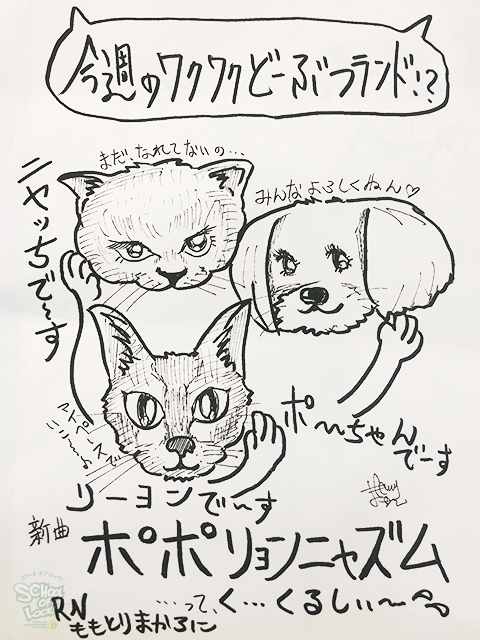 今週のワクワクどーぶつランド!?
まだ、なれてないの…
みんなよろしくねん♡
ニャッちで〜す
ポ〜ちゃん
でーす
リーヨンで〜す
新曲
ポポリヨンニャズム
…って、く…くるしい〜
RN
ももとりまかろに
SCHOOL OF LOCK!